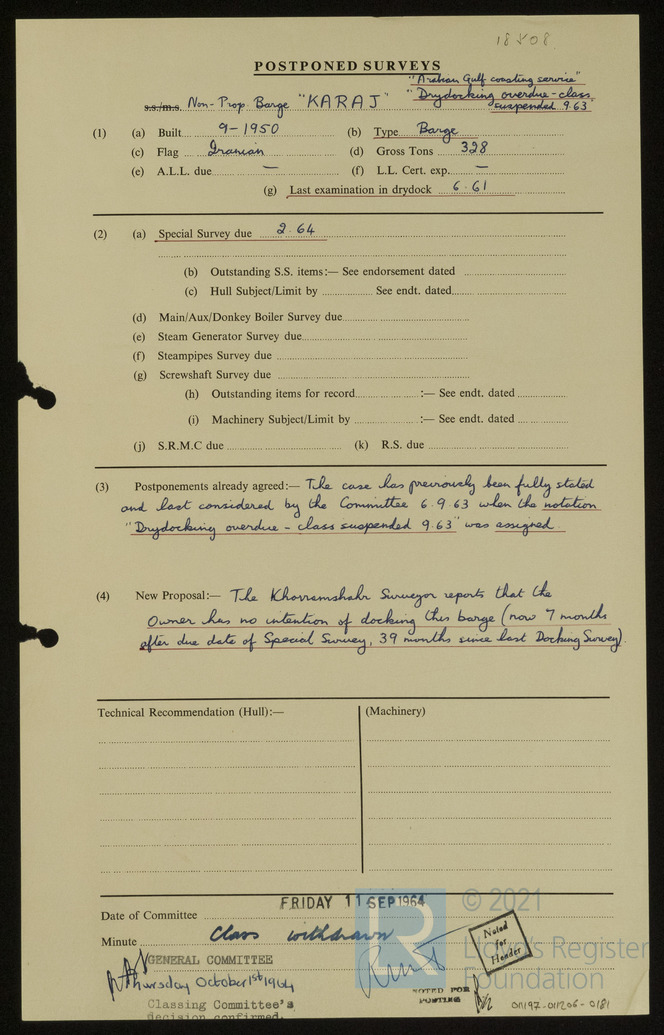 18808
POSTPONED SURVEYS
"Arabian Gulf coasting service"
s.s./m.s. Non-Prop. Barge "KARAJ" "Drydocking overdue - class
suspended 9.63"
(1) (a) Built 9-1950 (b) Type Barge
(c) Flag Iranian (d) Gross Tons 328
(e) A.L.L. due — (f) L.L. Cert. exp. —
(g) Last examination in drydock 6.61
(2) (a) Special Survey due 2.64
(b) Outstanding S.S. items:— See endorsement dated
(c) Hull Subject/Limit by See endt. dated
(d) Main/Aux/Donkey Boiler Survey due
(e) Steam Generator Survey due
(f) Steampipes Survey due
(g) Screwshaft Survey due
(h) Outstanding items for record :— See endt. dated
(i) Machinery Subject/Limit by :— See endt. dated
(j) S.R.M.C due (k) R.S. due
(3) Postponements already agreed:— The case has previously been fully stated
and last considered by the Committee 6.9.63 when the notation
"Drydocking overdue - class suspended 9.63" was assigned.
(4) New Proposal:— The Khorramshahr Surveyor reports that the
Owner has no intention of docking this barge (now 7 months
after due date of Special Survey, 39 months since last Docking Survey).
Technical Recommendation (Hull):— (Machinery)
Date of Committee FRIDAY 11 SEP 1964
Minute Class withdrawn
GENERAL COMMITTEE
Thursday October 1st 1964
Classing Committee's
decision confirmed.
Noted
for
Header
NOTED FOR
POSTING
© 2021
Lloyd's Register
Foundation
ON197-011206-0181